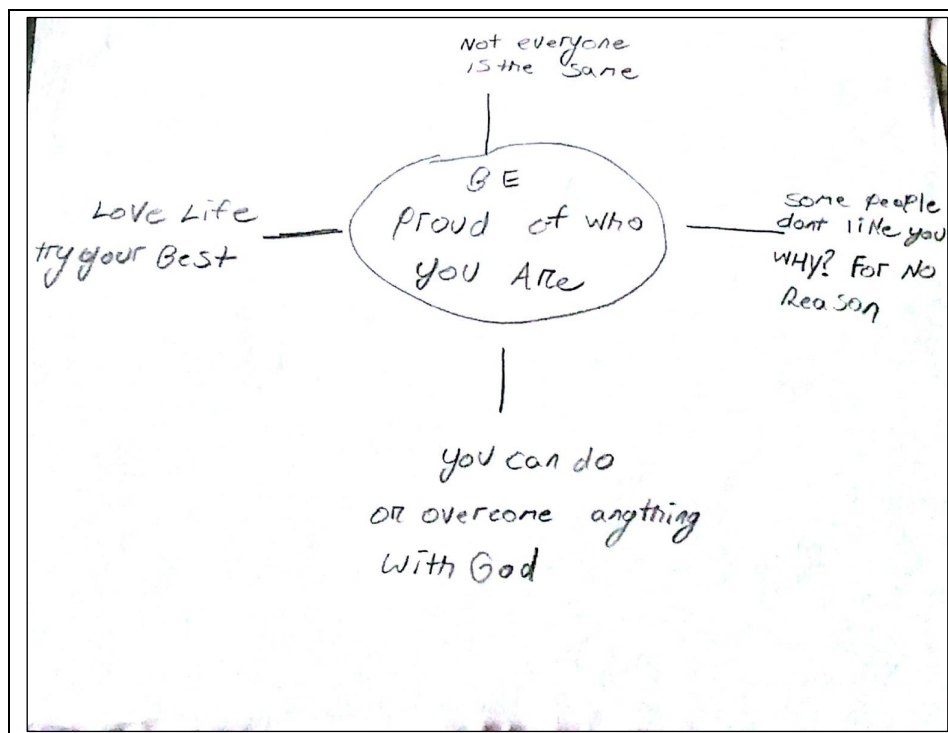 Not everyone
is the same
BE
Proud of who
you Are
Love Life
try your Best
Some people
dont like you
WHY? For No
Reason
you can do
or overcome angthing
With God